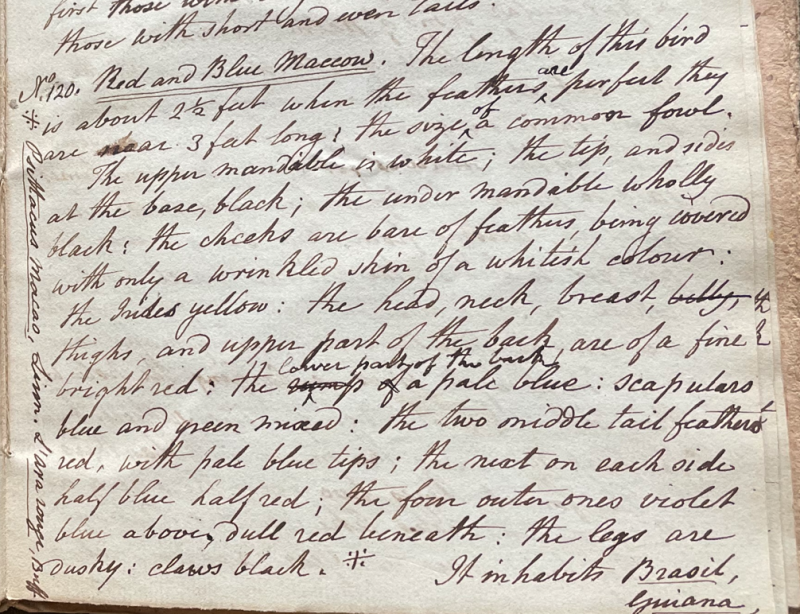 first those with
those with short and even tails.
No. 120. Red and Blue Maccow. The length of this bird
is about 2½ feet when the feathers are perfect they
are near 3 feet long: the size of a common fowl.
The upper mandible is white; the tip, and sides
at the base, black; the under mandible wholly
black: the cheeks are bare of feathers, being covered
with only a wrinkled skin of a whitish colour:
the Irides yellow: the head, neck, breast, belly,
thighs, and upper part of the back are of a fine
lower part of the back
bright red: the rump of a pale blue: scapulars
blue and green mixed: the two middle tail feathers
red, with pale blue tips; the next on each side
half blue half red; the four outer ones violet
blue above, dull red beneath: the legs are
dusky: claws black. ※ It inhabits Brasil,
Guiana,
※ Psittacus Macao, Linn. L'ara rouge, Buff.